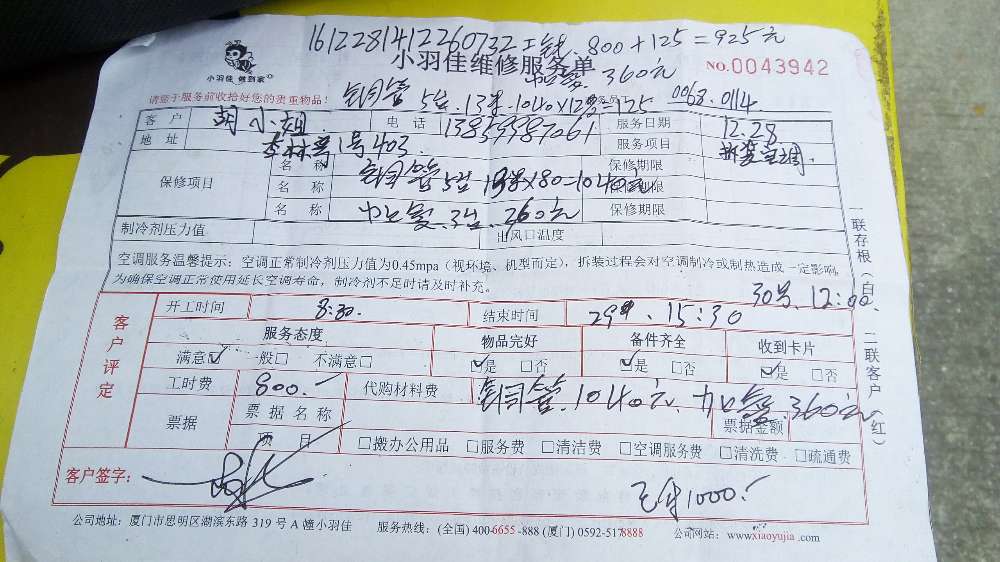 1612281412260732 工钱.800+125=925元
小羽佳 做到家
小羽佳维修服务单
加氟 360元
NO.0043942
请您于服务前收拾好您的贵重物品!
铜管 5台.13米.1040×12%=125 0063.0114
客户 胡小姐 电话 13859987061 服务日期 12.28
地址 1号403 服务项目 拆装空调
保修项目
名称 铜管5台 13米×80=1040元 保修期限
名称 保修期限
名称 加氟.3台.360元 保修期限
制冷剂压力值 出风口温度
空调服务温馨提示:空调正常制冷剂压力值为0.45mpa(视环境、机型而定),拆装过程会对空调制冷或制热造成一定影响,
为确保空调正常使用延长空调寿命,制冷剂不足时请及时补充。
30号 12:00
客户评定
开工时间 8:30. 结束时间 29号、15:30
服务态度 物品完好 备件齐全 收到卡片
满意☑ 一般□ 不满意□ ☑是 □否 ☑是 □否 ☑是 □否
工时费 800.- 代购材料费 铜管.1040元、加氟.360元
票据 票据名称 票据金额
项目 □搬办公用品 □服务费 □清洁费 □空调服务费 □清洗费 □疏通费
客户签字:
已付1000.-
公司地址:厦门市思明区湖滨东路 319 号 A 幢小羽佳 服务热线:(全国) 400-6655-888 (厦门) 0592-5178888 公司网站:www.xiaoyujia.com
一联存根(白)、二联客户(红)